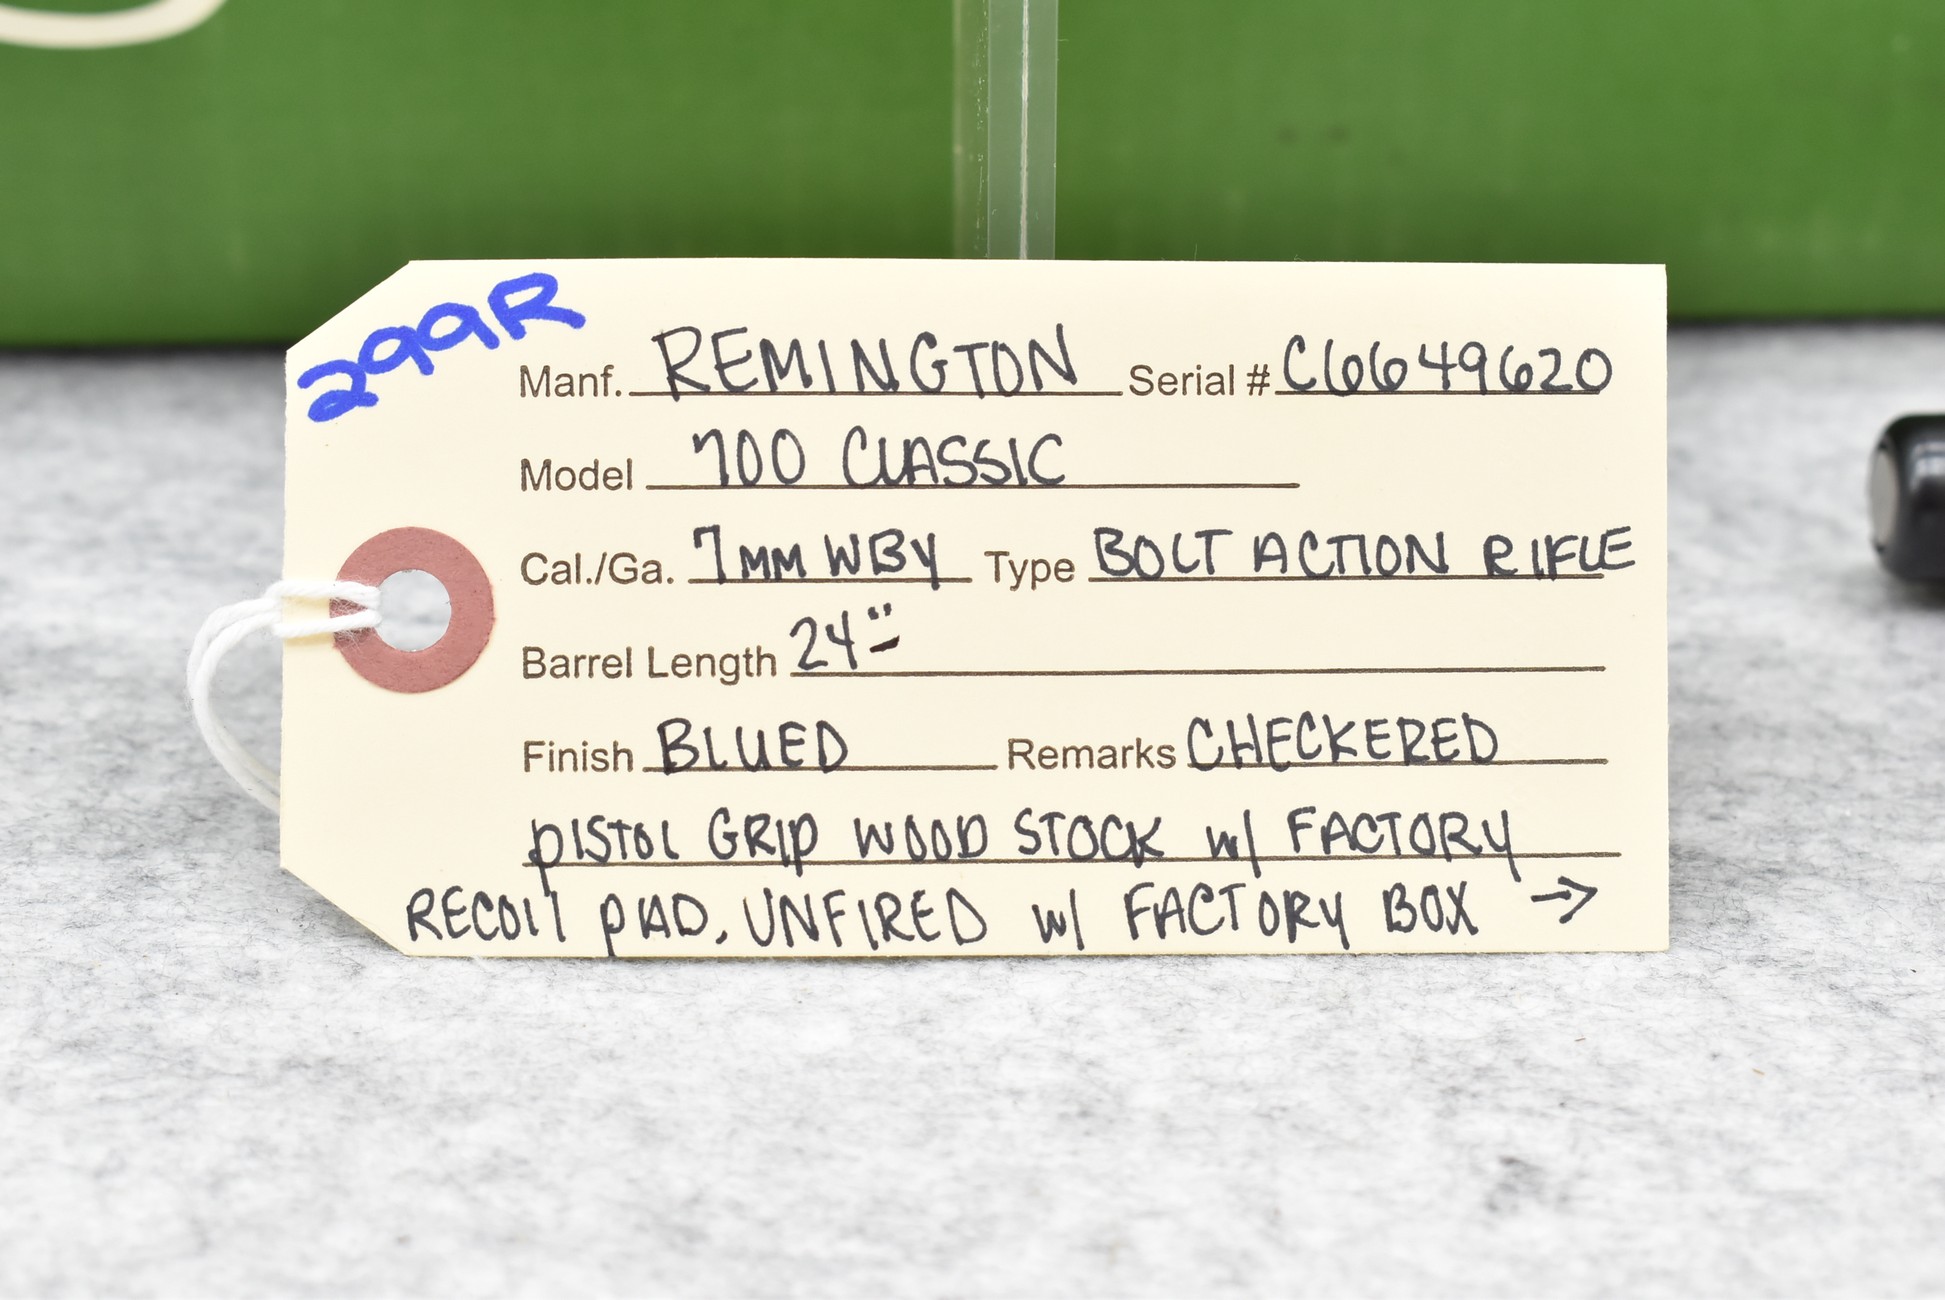 299R
Manf. REMINGTON Serial # C6649620
Model 700 CLASSIC
Cal./Ga. 7MM WBY Type BOLT ACTION RIFLE
Barrel Length 24"
Finish BLUED Remarks CHECKERED
PISTOL GRIP WOOD STOCK w/ FACTORY
RECOIL PAD, UNFIRED w/ FACTORY BOX →